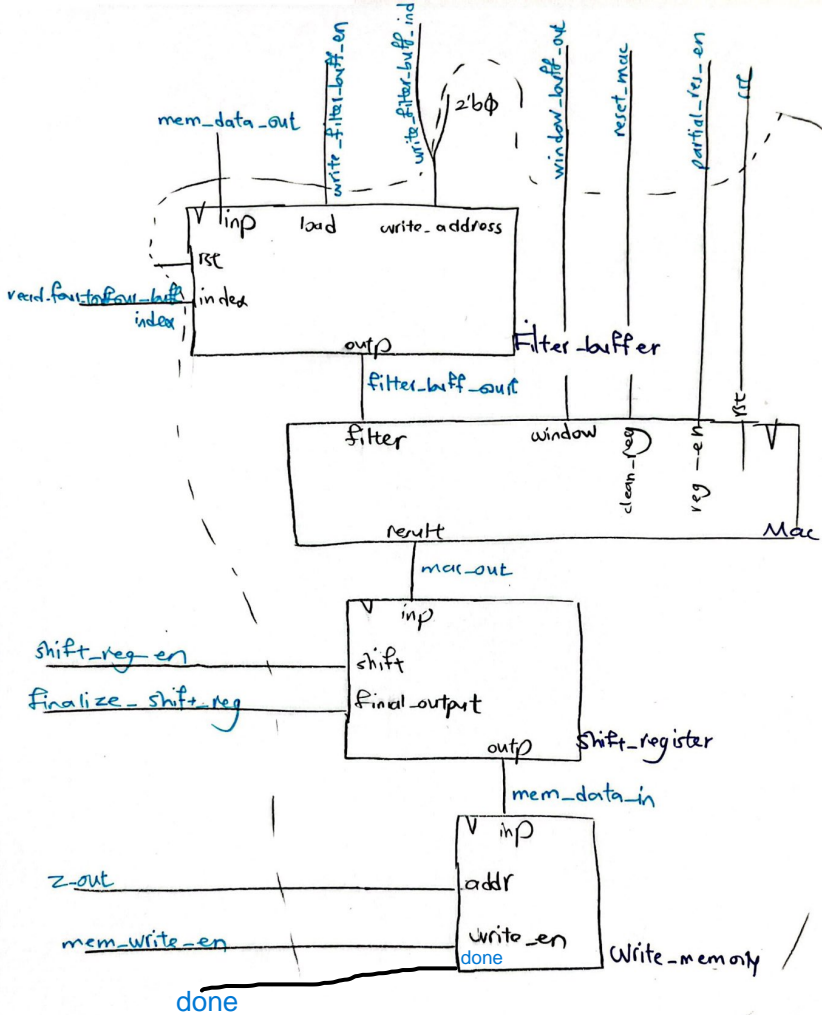 write_filter_buff_en
write_filter_buff_ind
2'bφ
window_buff_out
reset_mac
partial_res_en
rst
mem_data_out
inp
load
write_address
rst
index
index
outp
Filter_buffer
filter_buff_out
filter
window
clean_reg
reg_en
rst
result
Mac
mac_out
inp
shift_reg_en
shift
finalize_shift_reg
final_output
outp
shift_register
mem_data_in
inp
z_out
addr
mem_write_en
write_en
done
Write_memory
done